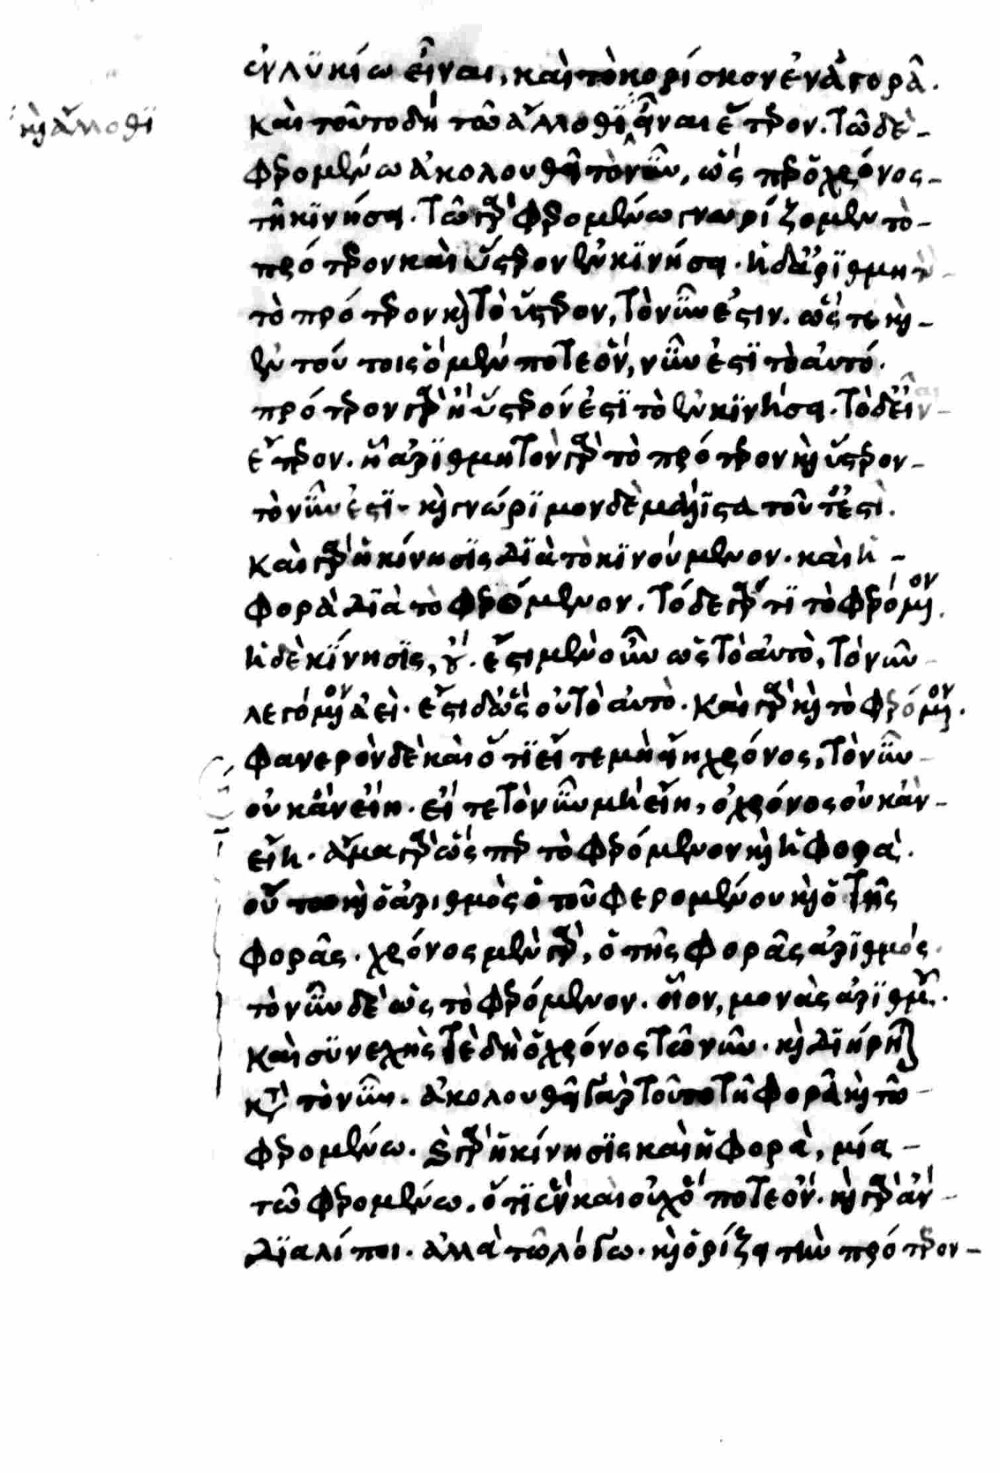 ἐν λυκίω εἶναι, καὶ τὸ κορίσκον ἐν ἀγορᾶ.
κὴ ἄλλοθϊ
καὶ τοῦτο δὴ τῶ ἄλλοθϊ εἶναι ἕτερον. τῶ δὲ
φερομένω ἀκολουθεῖ τὸ νῦν, ὥς περ ὁ χρόνος
τῆ κινήσει. τῶ γὰρ φερομένω γνωρίζομεν τὸ
πρότερον καὶ ὕστερον ἐν κινήσει. ἧ δ' ἀριθμητὸν
τὸ πρότερον καὶ τὸ ὕστερον, τὸ νῦν ἐστιν. ὥστε καὶ
ἐν τούτοις ὃ μέν ποτε ὂν, νῦν ἐστϊ τὸ αὐτό.
πρότερον γὰρ ἢ ὕστερόν ἐστϊ τὸ ἐν κινήσει. τὸ δ' εἶναι
ἕτερον. ἧ ἀριθμητὸν γὰρ τὸ πρότερον καὶ ὕστερον
τὸ νῦν ἐστϊ. καὶ γνώριμον δὲ μάλιστα τοῦτ' ἐστὶ.
καὶ γὰρ ἡ κίνησις διὰ τὸ κινούμενον. καὶ ἡ
φορὰ διὰ τὸ φερόμενον. τόδε γάρ τι τὸ φερόμενον.
ἡ δὲ κίνησις, οὔ. ἔστι μὲν οὖν ὡς τὸ αὐτὸ, τὸ νῦν
λεγόμενον ἀεὶ. ἔστι δ' ὡς οὐ τὸ αὐτὸ. καὶ γὰρ καὶ τὸ φερόμενον.
φανερὸν δὲ καὶ ὅτι εἴτε μὴ εἴη χρόνος, τὸ νῦν
οὐκ ἂν εἴη. εἴτε τὸ νῦν μὴ εἴη, ὁ χρόνος οὐκ ἂν
εἴη. ἅμα γὰρ ὥσπερ τὸ φερόμενον καὶ ἡ φορὰ.
οὕτως καὶ ὁ ἀριθμὸς ὁ τοῦ φερομένου καὶ ὁ τῆς
φορᾶς. χρόνος μὲν γὰρ, ὁ τῆς φορᾶς ἀριθμός.
τὸ νῦν δὲ ὡς τὸ φερόμενον. οἷον, μονὰς ἀριθμοῦ.
καὶ συνεχὴς τε δὴ ὁ χρόνος τῶ νῦν. καὶ διήρηται
κατὰ τὸ νῦν. ἀκολουθεῖ γὰρ τοῦτο τῆ φορᾶ καὶ τῶ
φερομένω. καὶ γὰρ ἡ κίνησις καὶ ἡ φορὰ, μία
τῶ φερομένω. ὅτι ἓν καὶ οὐχ ὅ ποτε ὄν. καὶ γὰρ ἂν
διαλίποι. ἀλλὰ τῶ λόγω. καὶ ὁρίζει τὴν πρότερον